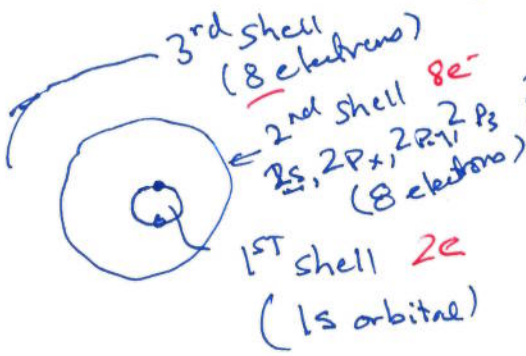 3rd shell
(8 electrons)
2nd shell 8e-
2s, 2Px, 2Py, 2P3
(8 electrons)
1ST shell 2e
(1s orbital)